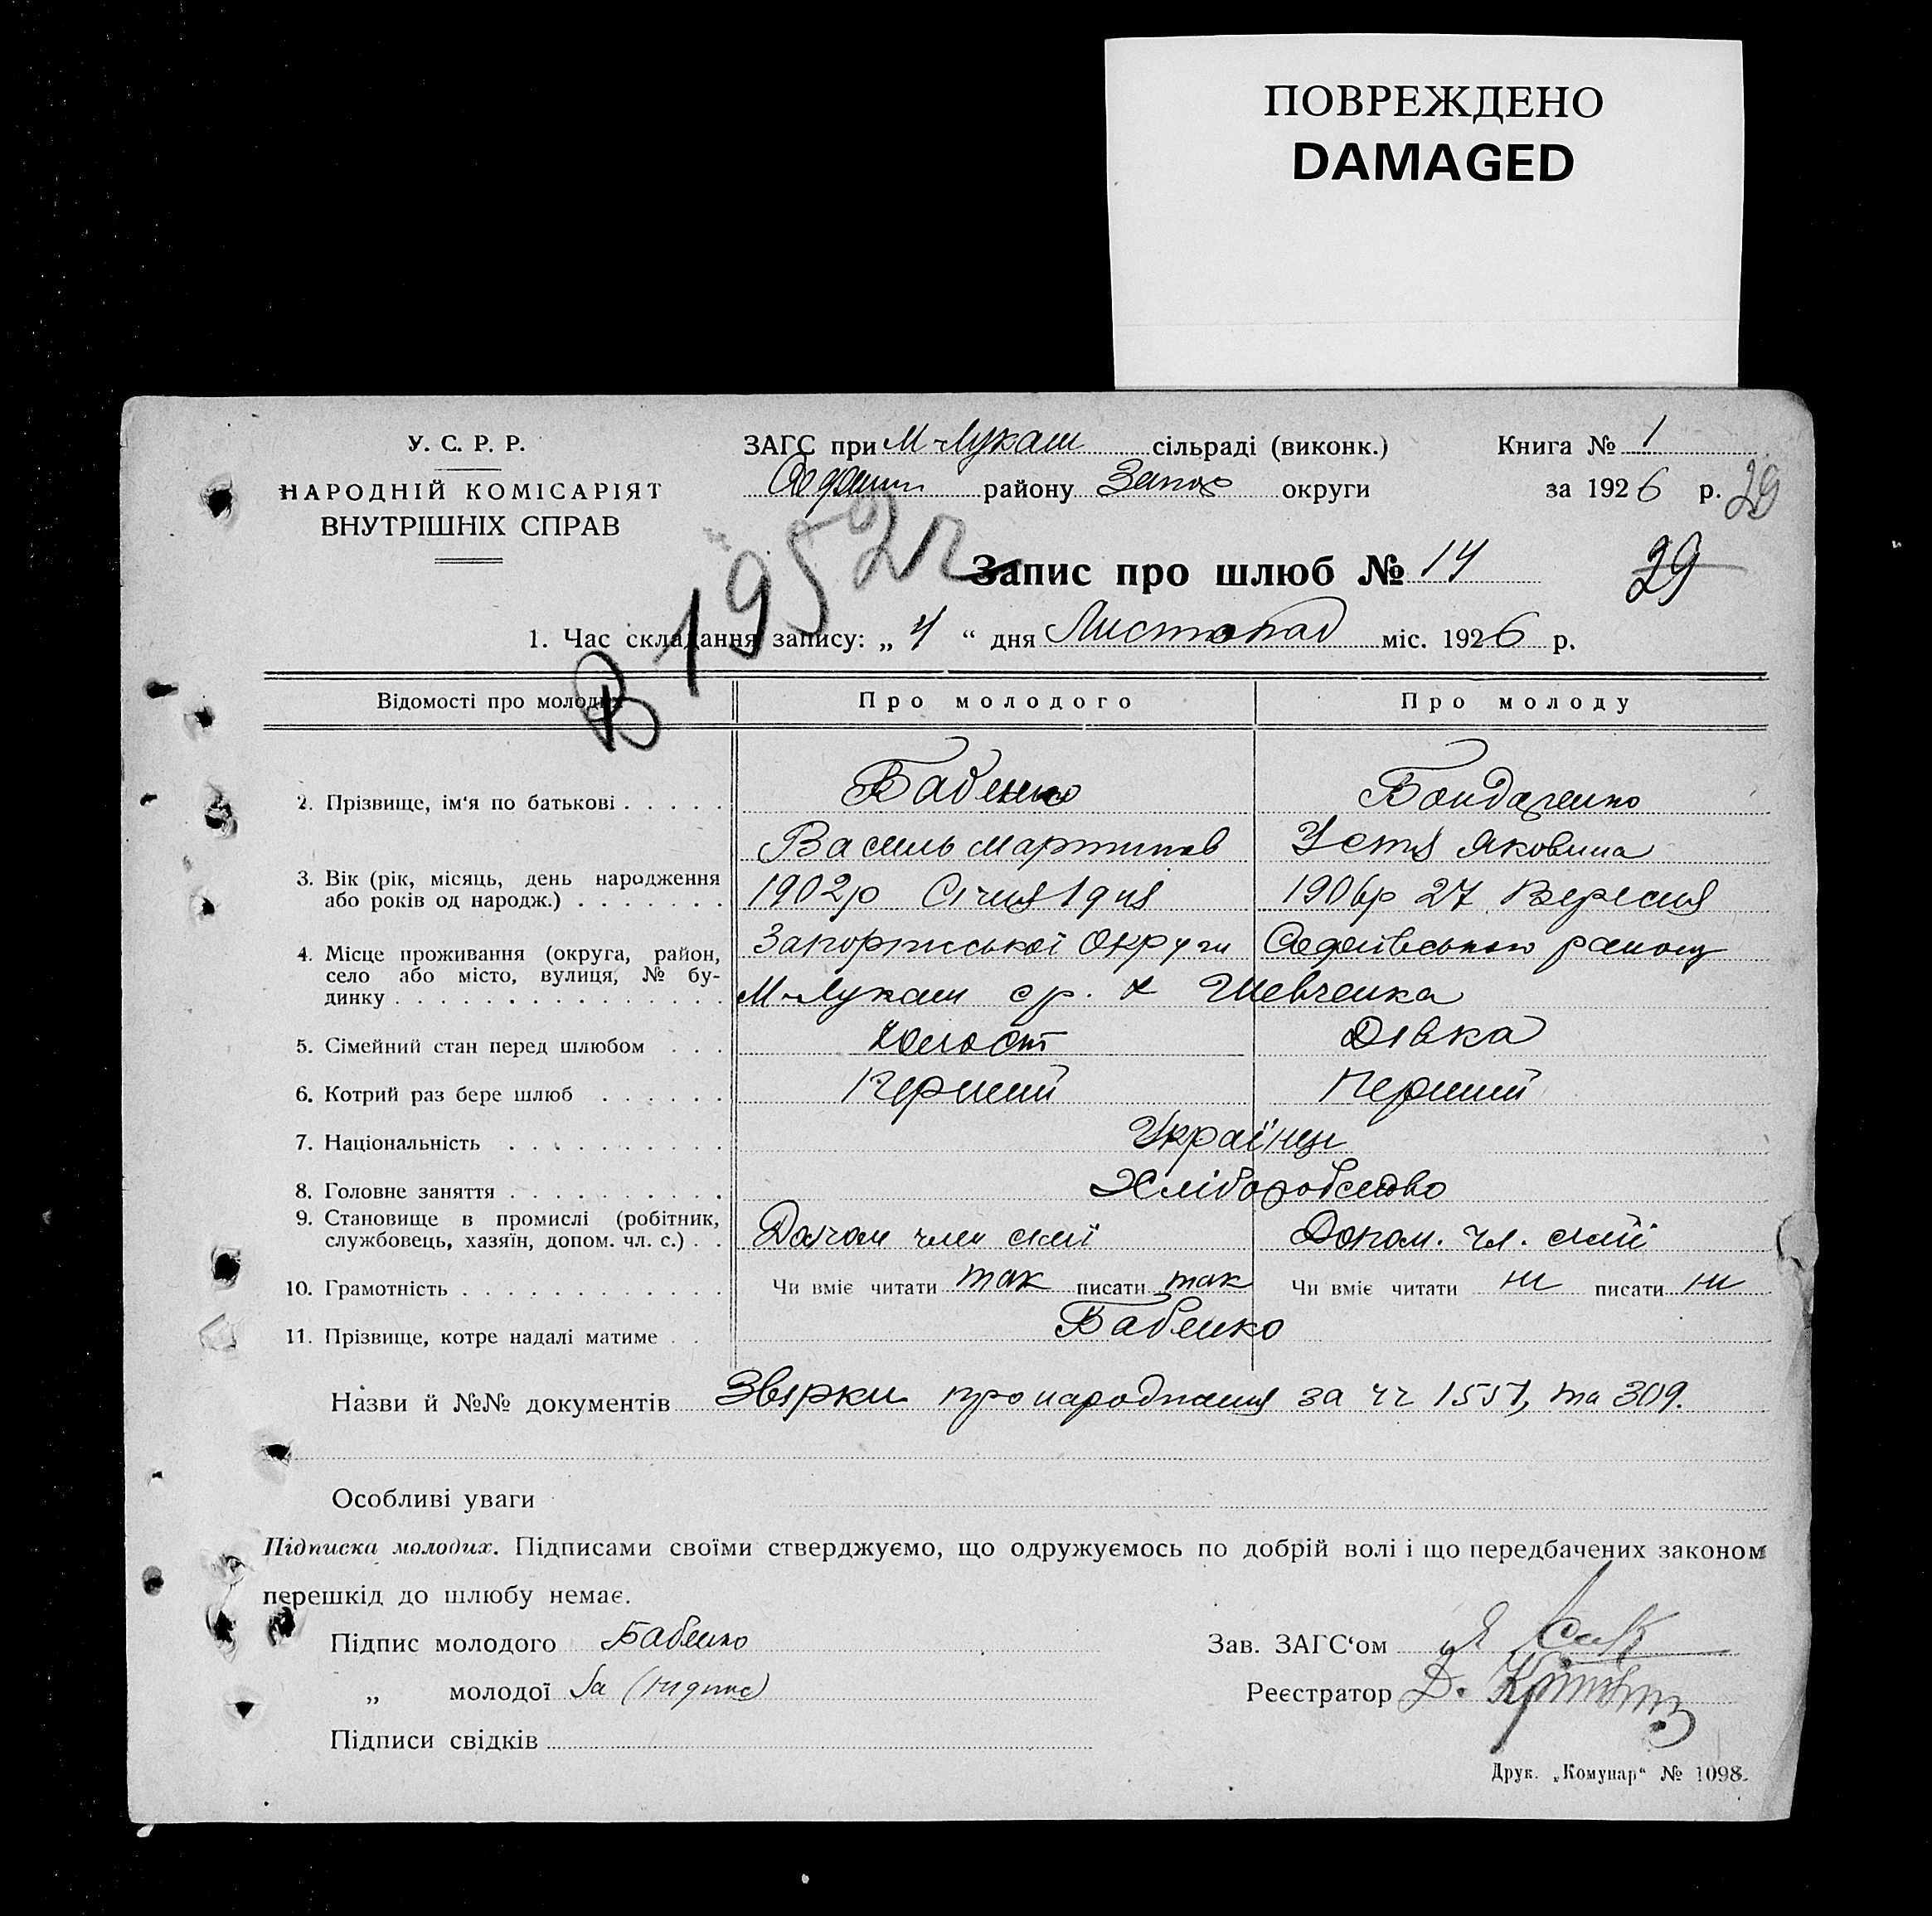 ПОВРЕЖДЕНО
DAMAGED
У. С. Р. Р.
НАРОДНІЙ КОМІСАРІЯТ
ВНУТРІШНІХ СПРАВ
ЗАГС при М-Лукаш сільраді (виконк.)
району Запор округи
Книга № 1
за 1926 р. 29
Запис про шлюб № 14
29
В 1952 г
1. Час складання запису: „ 4 “ дня Листопад міс. 1926 р.
Відомості про молодих Про молодого Про молоду
2. Прізвище, ім‘я по батькові Бабенко Бондаренко
Василь Мартинов Устя Яковина
3. Вік (рік, місяць, день народження або років од народж.) 1902р Січня 1 дня 1906р 27 Вересня
4. Місце проживання (округа, район, село або місто, вулиця, № будинку Запоріжської Округи району
М-Лукаш с/р. х Шевченка
5. Сімейний стан перед шлюбом Холост Дівка
6. Котрий раз бере шлюб Перший Перший
7. Національність Українці
8. Головне заняття Хліборобство
9. Становище в промислі (робітник, службовець, хазяїн, допом. чл. с.) Допом член сімї Допом. чл. сімїі
10. Грамотність Чи вміє читати так писати так Чи вміє читати ни писати ни
11. Прізвище, котре надалі матиме Бабенко
Назви й №№ документів про народження за чч 1551, та 309.
Особливі уваги
Підписка молодих. Підписами своїми стверджуємо, що одружуємось по добрій волі і що передбачених законом
перешкід до шлюбу немає.
Підпис молодого Бабенко
„ молодої За
Підписи свідків
Зав. ЗАГС‘ом
Реєстратор Д.
Друк. „Комунар“ № 1098.